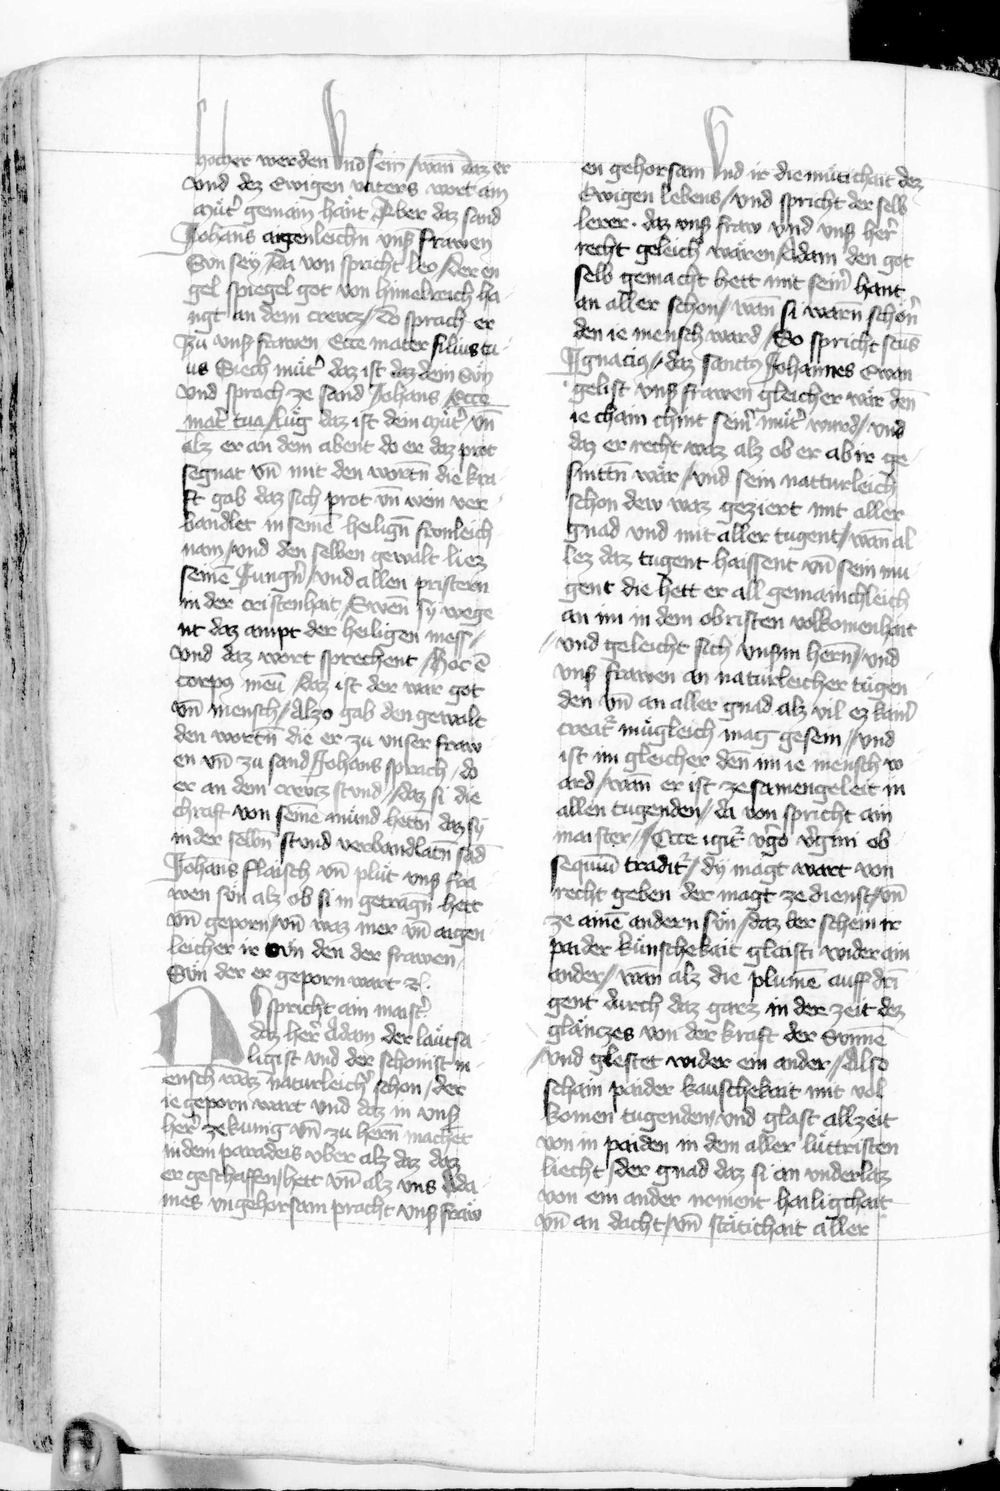 hocher werden vnd sein / wān daz er
vnd dez Ewigen vaters wort ain
müt̉ gemain hänt Aber daz sand
Johans aigenleichn̄ vnß frawen
Svn sey / da von spricht leo / der en
gel spiegel got von himelreich ha-
ngt an dem crevcz / Do sprach er
zu vnß frawen Ecce mater filius tu-
us Siech müt̉ daz ist daz dem Svn
vnd sprach ze sand Johans / Ecce
mat̉ tua / lüg daz ist dein müt̉ / vn̄
alz er an dem abent do er daz prot
segnat vn̄ mit den wortn̄ die kra-
ft gab daz sich prot vn̄ wein ver
bandlet in seinē heilign̄ fronleich
nam / vnd den selben gewalt liez
seinē Jungn̉ / vnd allen pristern
in der cristenhait / Swen̄ sy wege
nt daz ampt der heiligen mess /
vnd daz wort sprechent / Hoc ē
corpus meū / daz ist der war got
vn̄ mensch / Alzo gab den gewalt
den wortn̄ die er zu vnser fraw
en vn̄ zu sand Johans sprach / do
er an dem crevcz stvnd / daz si die
chraft von seinē mund hettn̄ daz sy
in der selbn̄ stvnd verbandlatn̄ sād
Johans flaisch vn̄ plüt vnß fra
wen svn alz ob si in getragn̄ hett
vn̄ geporn / vn̄ waz mer vn̄ aigen
leicher ir svn den der frawen
Svn der er geporn wart zc.
Nv spricht ain maist̉
daz her̉ Adam der lautsa
ligist vnd der schonist m
ensch waz naturleich̉ schon / der
ie geporn wart vnd daz in vnß
her̉ ze kunig vn̄ zu hern̄ machet
in dem paradeis vber alz daz daz
er geschaffen hett vn̄ alz vns Ada
mes vngehorsam pracht vnß fraw
en gehorsam vnd ir die mütichait dez
Ewigen lebens / vnd spricht der selb
lerer . daz vnß fraw vnd vnß her̉
recht geleich wären / Adam den got
selb gemacht hett mit sein̉ hant
an aller schon / wān si warn̄ schön̉
den ie mensch ward / So spricht scūs
Ignacius / daz sanctus Johannes Ewan
gelist vnß frawen gleicher wär den̄
ie cham chint sein̉ müt̉ wurd / vnd
daz er recht waz alz ob er ab ir ge
snittn̄ wär / vnd sein natturleich
schon dew waz geziert mit aller
gnad vnd mit aller tugent / wān al
lez daz tugent haissent vn̄ sein mu
gent die hett er all gemainchleich
an im in dem obristen volkomenhait
vnd geleicht sich vnßm hern / vnd
vnß frawen an naturleicher tügen
den vn̄ an aller gnad alz vil ez kain̉
creat̉ mügleich mag gesein / vnd
ist im gleicher den̄ im ie mensch w
ard / wān er ist zesamengeleit in
allen tugenden / da von spricht ain
maister / Ecce igit̉ v̉go v̉gini ob
sequiū tradit̉ / dy magt wart von
recht geben der magt ze dienst / vn̄
ze ainē andern svn / daz der schein ir
paider künschekait glasti wider ain
ander / wan alz die plumē auff dri
gent durch daz garz in der zeit dez
glänczes von der kraft der Svnnē
vnd glestet wider ein ander / Also
schain paider kauschekait mit vol
komen tugenden / vnd glast allzeit
von in paiden in dem aller lüttristen
liecht / der gnad daz si an vnderlaz
von ein ander nement hailigchait
vn̄ an dacht / vn̄ stätichait aller